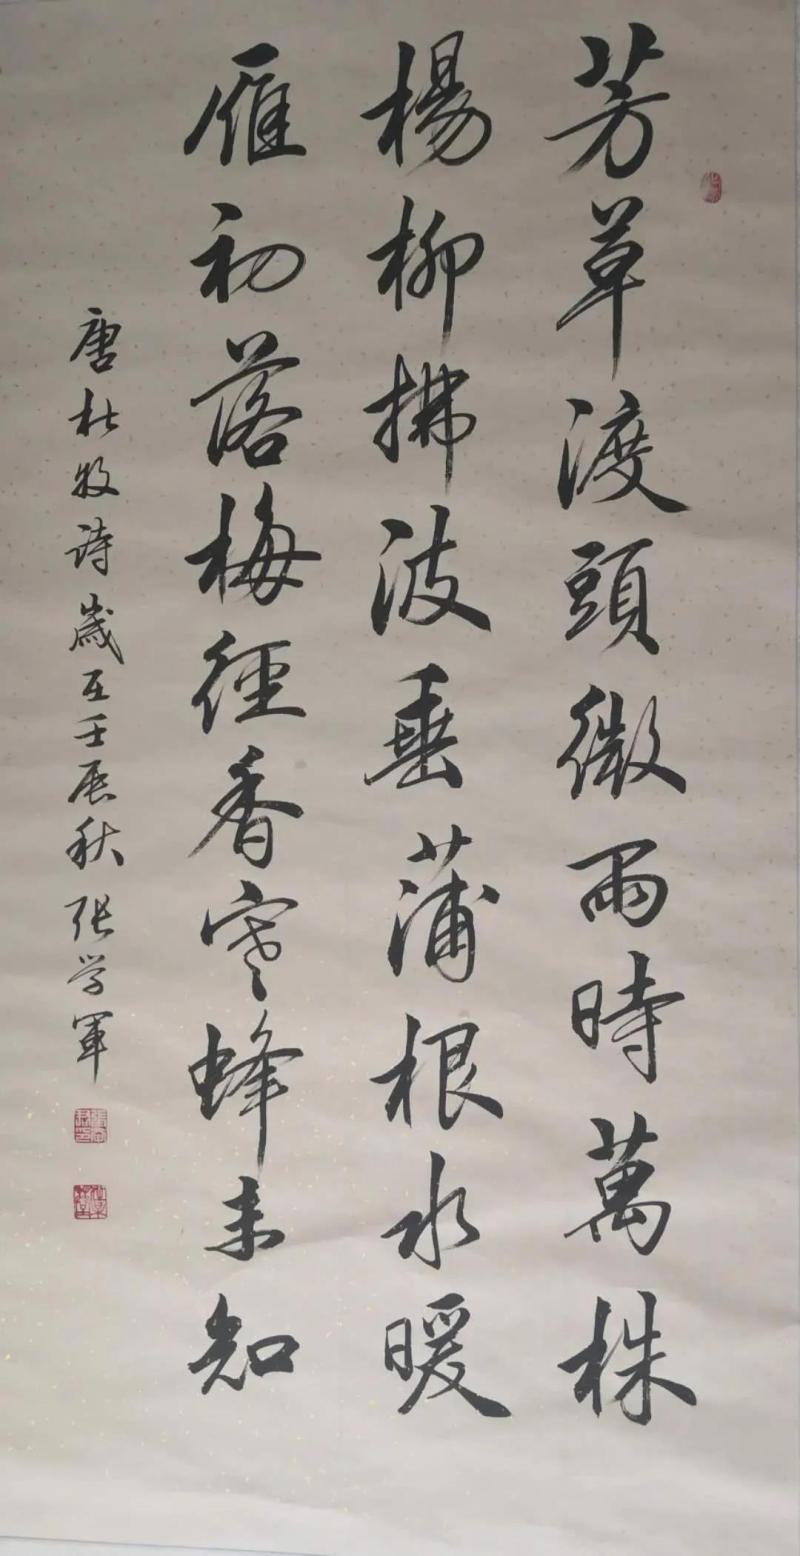 芳草渡頭微雨時萬株
楊柳拂波垂蒲根水暖
雁初落梅徑香寒蜂未知
唐杜牧诗歲在壬辰秋张学軍